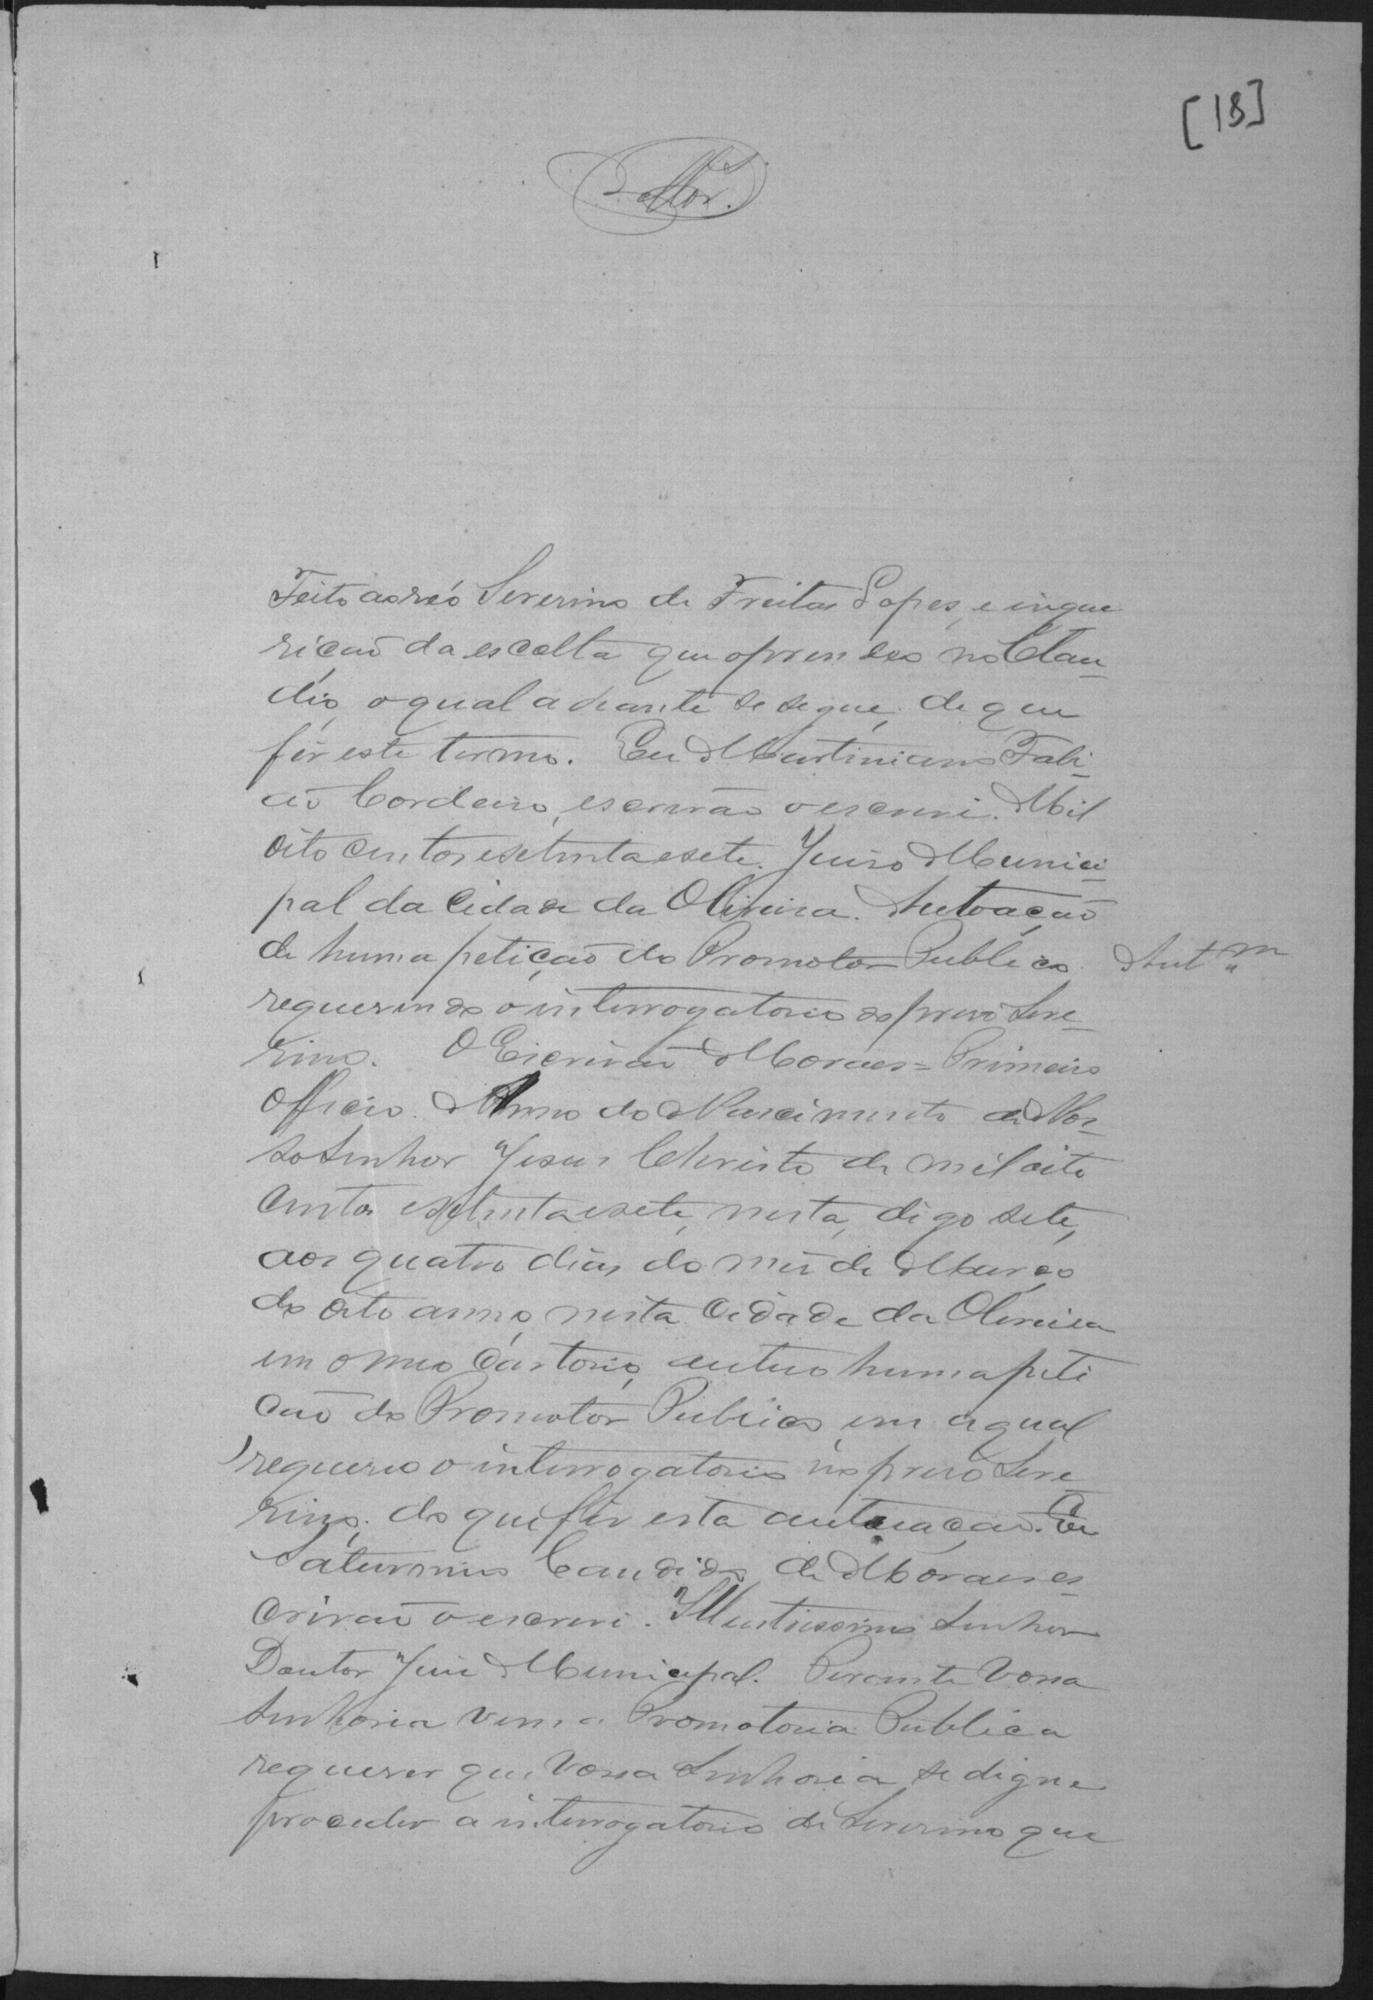 [18]
Mor.
Feito ao reó Severino de Freitas Lopes, e inque
rição da escolta que o prendeo no Clau-
dio, o qual adiante se segue; de que
fis este termo. Eu Martiniano Fabi-
ão Cordeiro, escrivão o escrevi. Mil
oito centos e setenta e sete. Juiso Munici-
pal da Cidade da Oliveira. Autoação
de huma petição do Promotor Publico
Aut.m
requerendo o interrogatorio do preso Seve-
rino. O Escrivão Moraes = Primeiro
Officio. Anno do Nascimento de Nos-
so Senhor Jesus Christo de mil oito
centos e setenta e sete, nesta, digo sete,
aos quatro dias do mes de Março
do dito anno, nesta Cidade da Oliveira
em o meo Cartorio, autuo huma peti
ção do Promotor Publico em a qual
requereo o interrogatorio no preso Seve
rino; do que fis esta autuação. Eu
Saturnino Candido de Moraes es-
crivão o escrevi. Illustrissimo Senhor
Doutor Juis Municipal. Perante Vossa
Senhoria vem a Promotoria Publica
requerer que Vossa Senhoria se digne
proceder a interrogatorio de Severino que